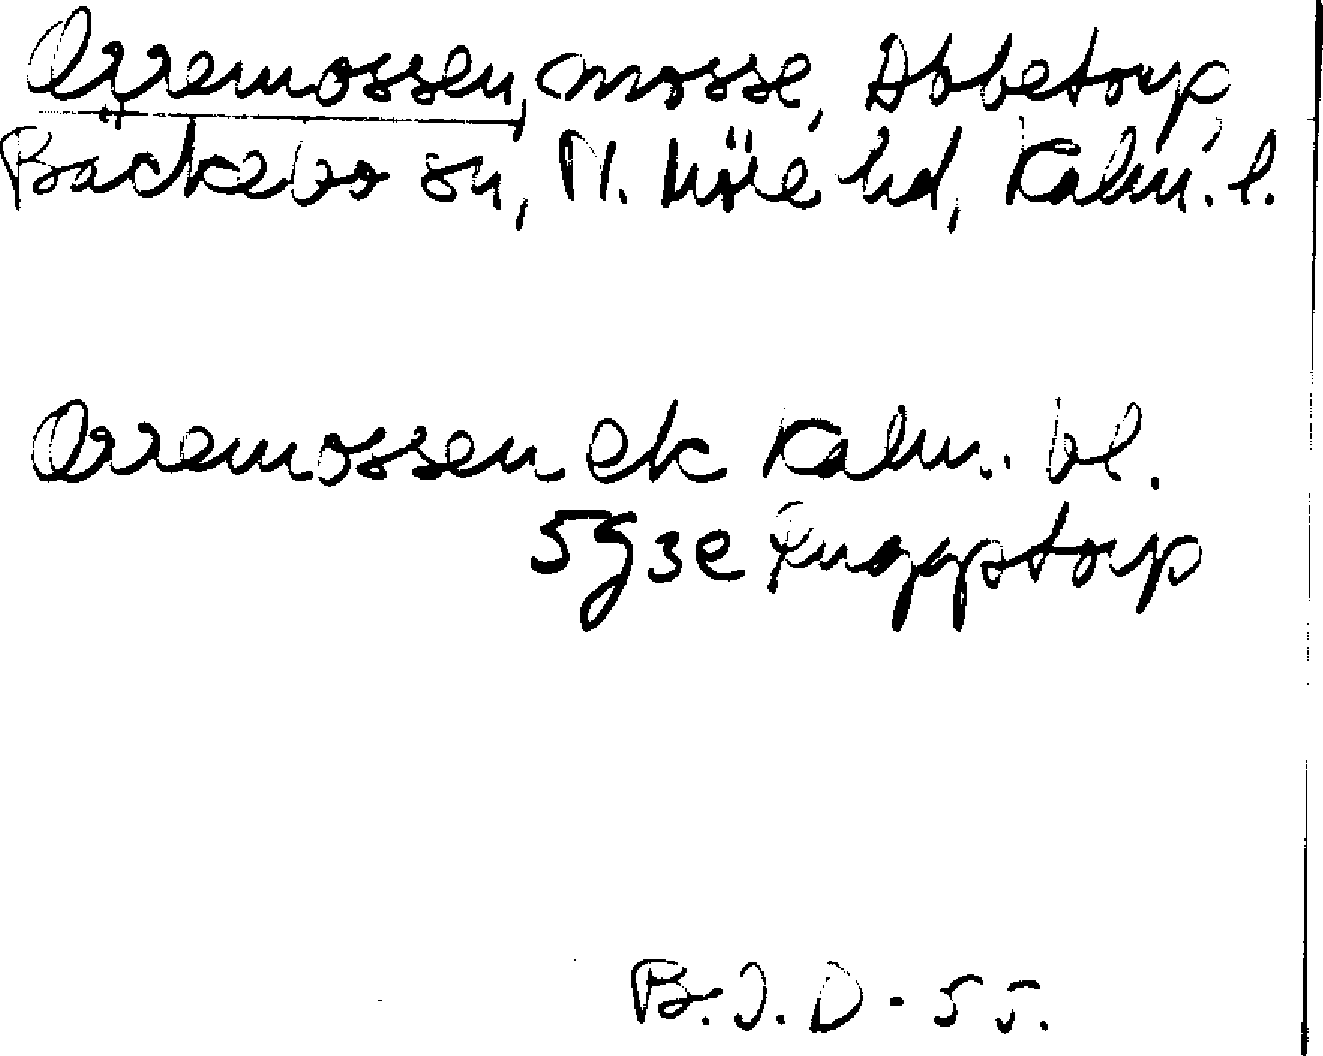 Orremossen, mosse, Abbetorp,
Bäckebo sn, N. Möre hd, Kalm. l.
Orremossen ek Kalm. bl.
5g3e Ruggstorp
B.J.D - 55.